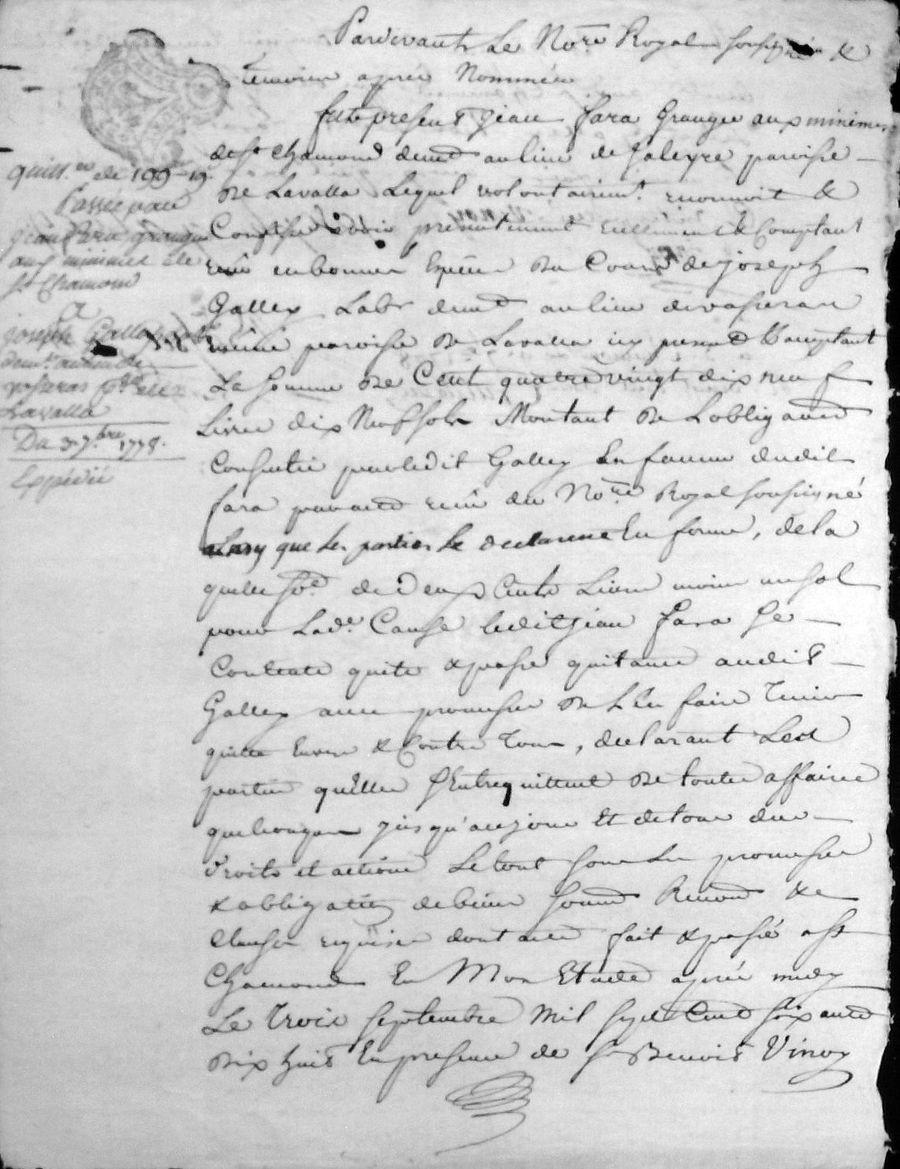 Pardevant Le No.re Royal soussigné &
temoins après Nommés
fut present Jean fara Granger aux minimes
de s.t chamond dem.t au lieu de paroisse
de Lavalla Lequel volontairem.t reconnoit &
Confesse avoir presentement reellement & Comptant
reçu en bonnes Especes du Cours de joseph
Galley Lab.r dem.t au lieu de
même paroisse de Lavalla icy present & acceptant
La somme de Cent quatre vingt dix neuf
Livres dix Neuf sols Montant de Lobligation
Consentie par ledit Galley En faveur dudit
fara pardevant du No.re Royal soussigné
ainsy que les parties Le declarent En forme, de la
quelle so.e de deux Cents Livres moins un sol
pour Lad.e Cause ledit jean fara se
Contente quite & passe quitance audit
Galley avec promesse de L'En faire Tenir
quitte Envers & Contre Tous, declarant Les d
parties qu'elles s'Entrequittent de toutes affaires
quelconques jusqu'au jour Et de tous
droits et actions Le tout sous les promesses
& obligations de biens soum.s Renon.s &
Clauses requises dont acte fait & passé a s.t
Chamond En Mon Etude après midy
Le Trois septembre Mil sept Cent soixante
dix huit En presence de s.r Benoit Vinoy
quitt.ce de 199-19
Passée par
jean fara granger
aux minimes de
s.t Chamond
A
joseph Galley lab.r
dem.t au lieu de
p.sse de
Lavalla
Du 3 7.bre 1778.
Expédié